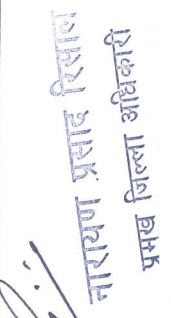 नारायण प्रसाद रिसाल
प्रमुख जिल्ला अधिकारी